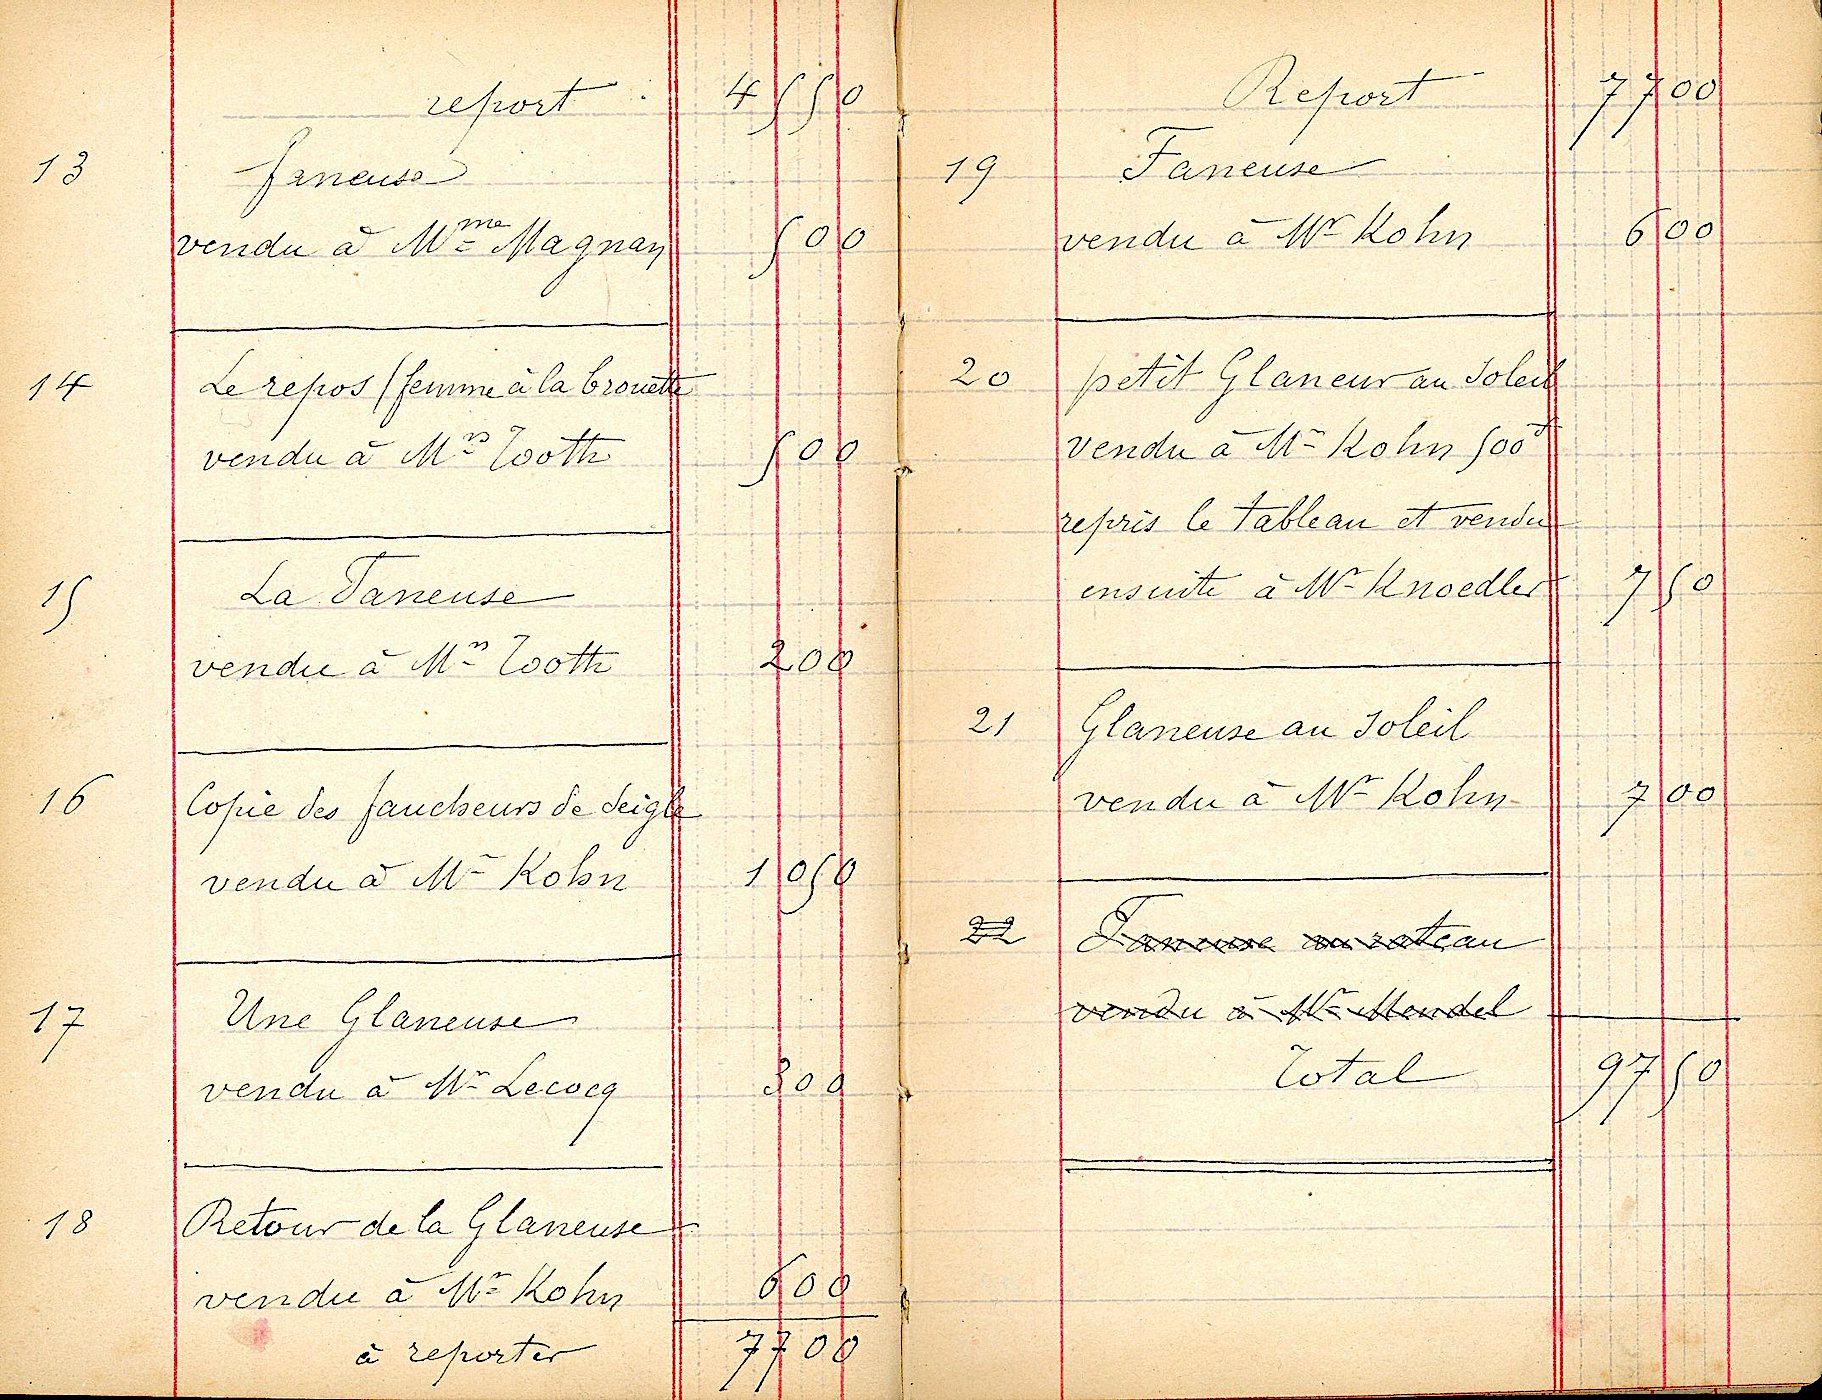 report . 4550
13 faneuse
vendu à Mme Magnan 500
14 Le repos (femme à la brouette
vendu à Mr Tooth 500
15 La Faneuse
vendu à Mr Tooth 200
16 Copie des faucheurs de Seigle
vendu à Mr Kohn 1050
17 Une Glaneuse
vendu à Mr Lecocq 300
18 Retour de la Glaneuse
vendu à Mr Kohn 600
à reporter 7700
Report 7700
19 Faneuse
vendu à Mr Kohn 600
20 petit Glaneur au Soleil
vendu à Mr Kohn 500f
repris le tableau et vendu
ensuite à Mr Knoedler 750
21 Glaneuse au Soleil
vendu à Mr Kohn 700
22 Faneuse au rateau
vendu à Mr Mendel
Total 9750